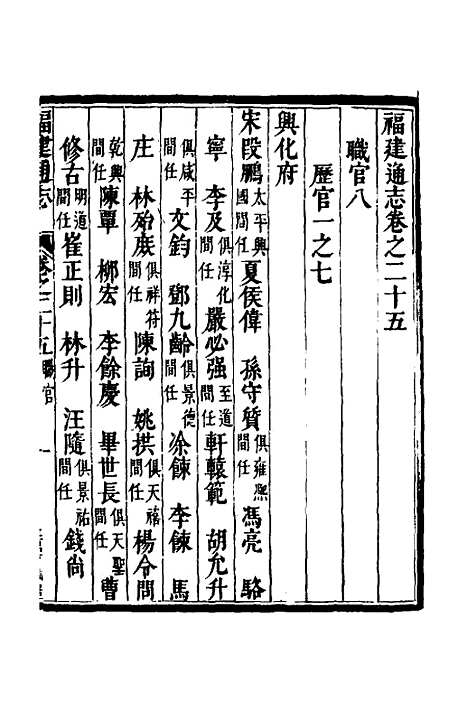 福建通志卷之二十五
職官八
歷官一之七
興化府
宋段鵬太平興國間任夏侯偉　孫守質俱雍熙間任馮亮　駱
寧　李及俱淳化間任嚴必强至道間任軒轅範　胡允升
俱咸平間任文鈞　鄧九齡俱景德間任凃鍊　李鍊　馬
庄　林殆庻俱祥符間任陳詢　姚拱俱天禧間任楊令問
乾興間任陳覃　柳宏　李餘慶　畢世長俱天聖間任曹
修古明道間任崔正則　林升　汪隨俱景祐間任錢尚
福建通志　卷之二十五職官　一